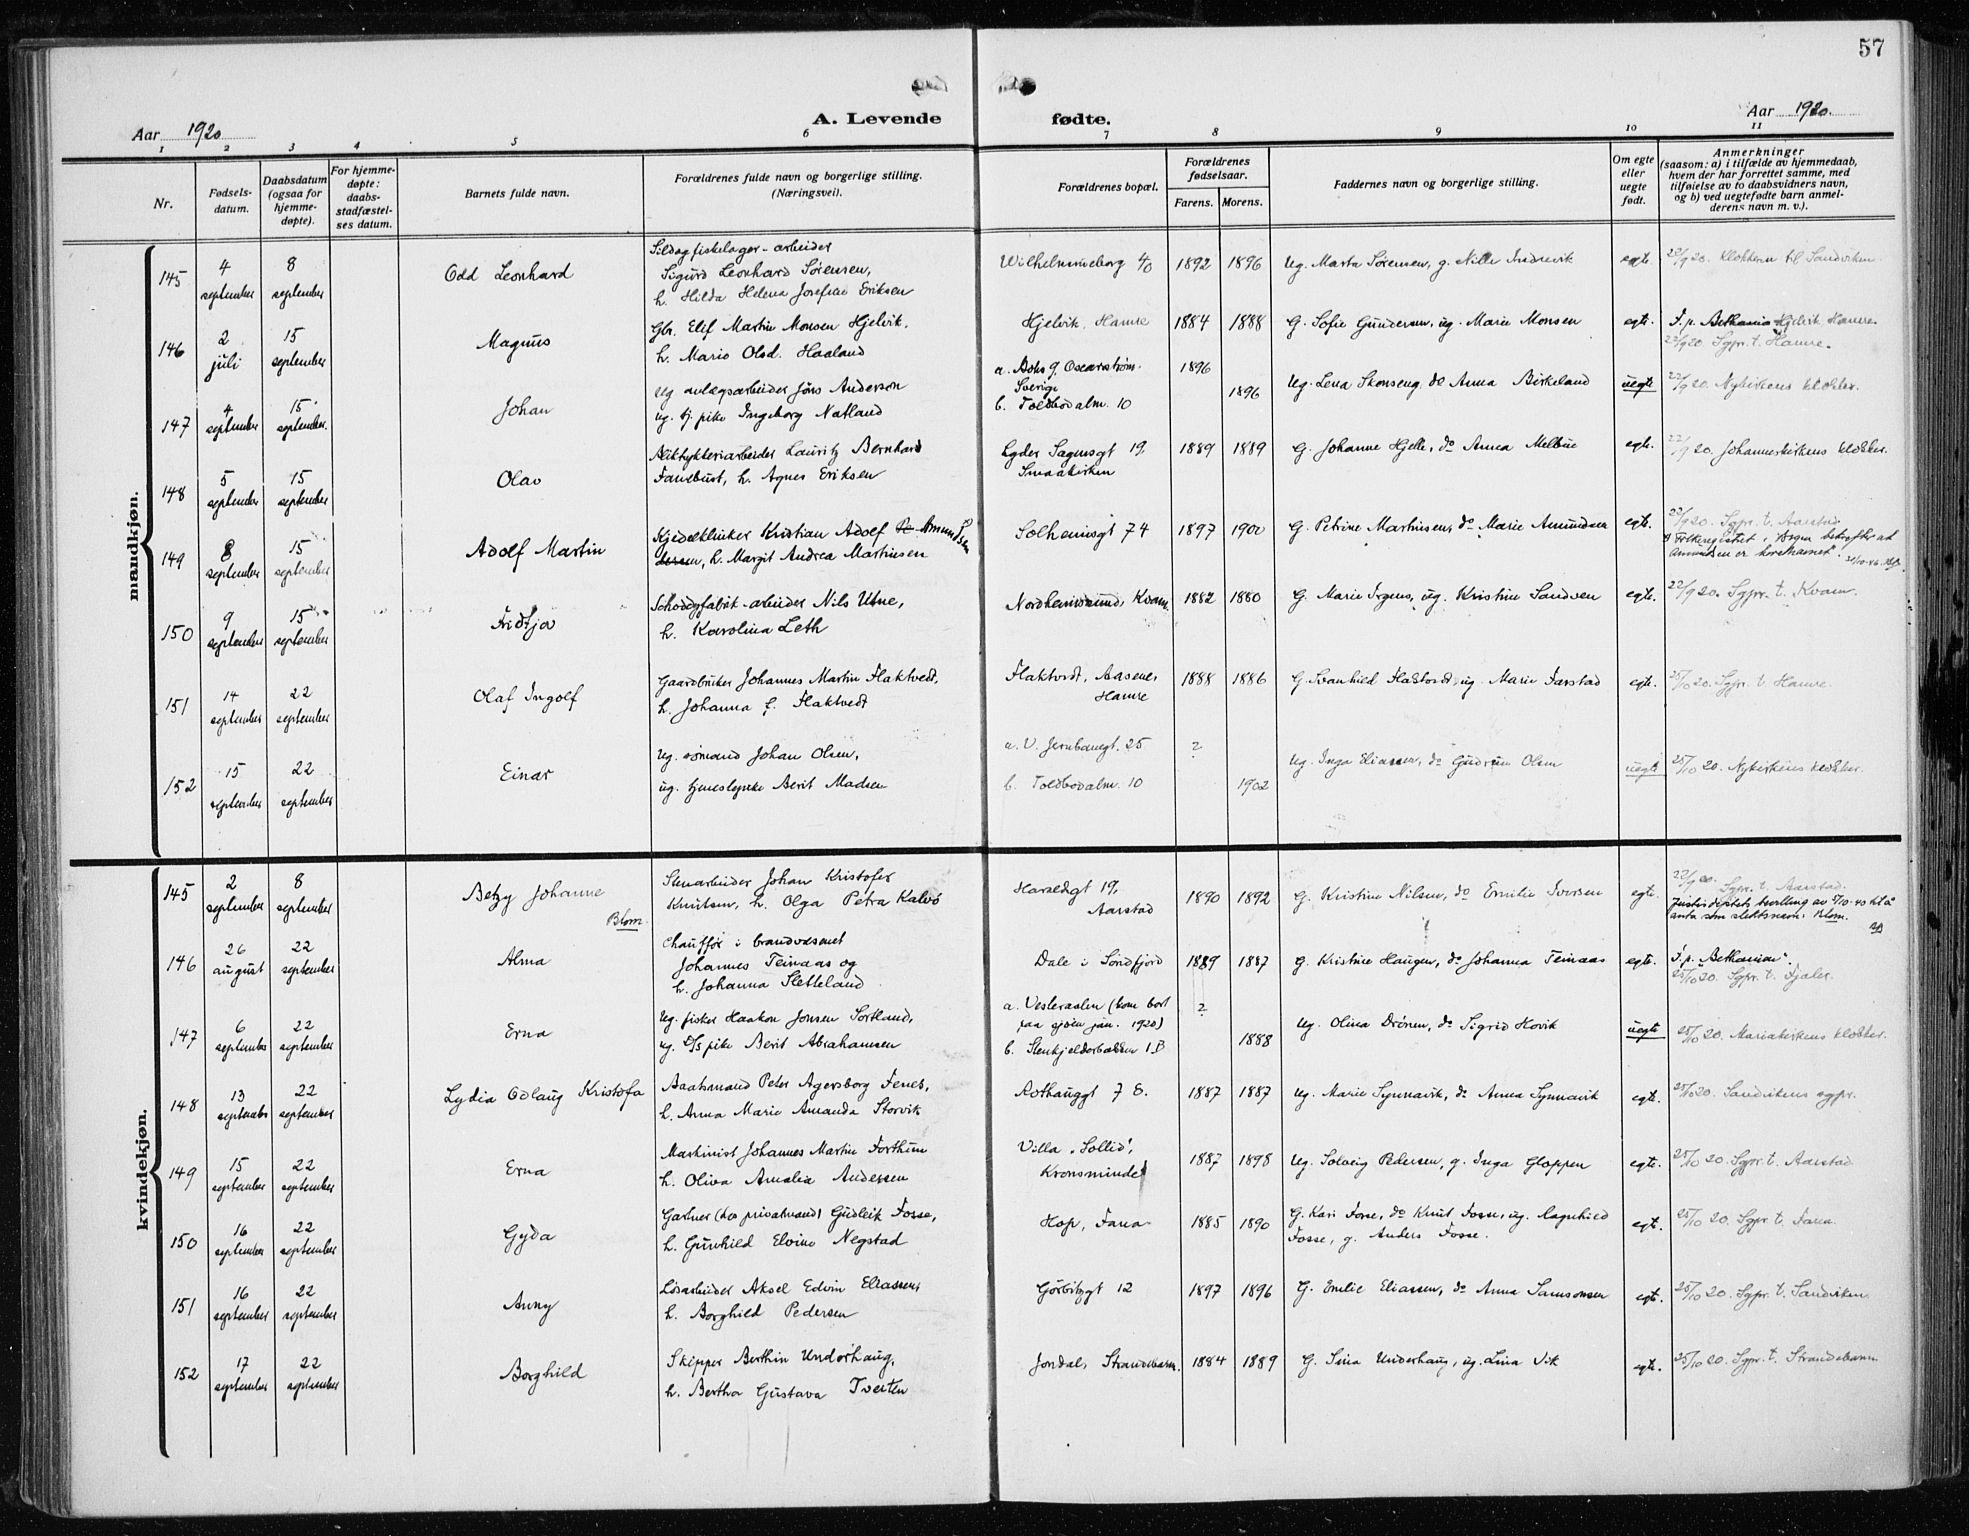 57
Aar 1920
A. Levende fødte.
Aar 1920.
1 2 3 4 5 6 7 8 9 10 11
Nr.
Fødsels-datum.
Daabsdatum (ogsaa for hjemme-døpte).
For hjemme-døpte: daabs-stadfæstel-ses datum.
Barnets fulde navn.
Forældrenes fulde navn og borgerlige stilling. (Næringsvei).
Forældrenes bopæl.
Forældrenes fødselsaar.
Farens. Morens.
Faddernes navn og borgerlige stilling.
Om egte eller uegte født.
Anmerkninger
(saasom: a) i tilfælde av hjemmedaab,
hvem der har forrettet samme, med
tilføielse av to daabsvidners navn,
og b) ved uegtefødte barn anmel-
derens navn m. v.).
mandkjøn.
145 4 september 8 september Odd Leonhard
Sildog fiskelager-arbeider
Sigurd Leonhard Sørensen,
h. Hilda Helena Josefine Eriksen
Wilhelmineborg 4/0 1892 1896 Ug. Marta Sørensen, g. Nille egte. 22/9 20. Klokkeren til Sandviken.
146 2 juli 15 september Magnus
Gbr. Elif Martin Monsen Hjelvik,
h. Mario Olsd. Haaland
Hjelvik, Hamre 1884 1888 G. Sofie Gundersen, ug. Marie Monsen egte. F. p. Bethania Hjelvik Hamre.
22/9 20. Sgpr. t. Hamre.
147 4 september 15 september. Johan
Ug anlægsarbeider Jöns Anderson
ug. tj. pike Ingeborg Natland
a. Oscarström. Sverige
b. Toldbodalm. 10
1896 1896 Ug. Lena Skonseng, do Anna Birkeland uegte 22/9 20. Nykirkens klokker.
148 5 september 15 september Olav
Lauritz Bernhard
Fanebust, h. Agnes Eriksen
Lyder Sagensgt 19. Smaakirken
1889 1889 G. Johanne Hjelle, do Anna Melbue egte. 22/9 20. Johanneskirkens klokker.
149 8 september 15 september Adolf Martin
Kjedelklinker Kristian Adolf Amundsen
h. Margit Andrea Martinsen
Solheimsgt 74 1897 1900 G. Petrine Martinsen, do Marie Amundsen egte. 22/9 20. Sgpr. t. Aarstad
Folkeregistret i Bergen bekræfter at
Amundsen er korrekt navnet.
150 9 september 15 september Fridtjov
Skotøgfabrik-arbeider Nils Utne,
h. Karolina Leth
Nordheimsund, Kvam. 1882 1880 G. Marie Irgens, ug. Kristine Sandven egte. 22/9 20. Sgpr. t. Kvam.
151 14 september 22 september Olaf Ingolf
Gaardbruker Johannes Martin Flaktvedt,
h. Johanna f. Flaktvedt
Flaktvedt, Aasene, Hamre
1888 1886 G. Svanhild Flaktvedt, ug. Marie Farstad egte. 25/10 20. Sgpr. t. Hamre.
152 15 september 22 september Einar
Ug. sömand Johan Olsen,
ug. tjenestepike Berit Madsen
a. V. Jernbanegt. 25
b. Toldbodalm. 10
? 1902 Ug. Inga Eliassen, do Gudrun Olsen uegte 25/10 20. Nykirkens klokker.
kvindekjøn.
145 2 september 8 september Betzy Johanne Blom.
Stenarbeider Johan Kristofer
Knutsen, h. Olga Petra Kalvö
Haraldsgt 19, Aarstad
1890 1892 G. Kristine Nilsen, do Emilie Iversen egte. 22/9 20. Sgpr. t. Aarstad.
Justisdeptets bevilling av 9/10-40 til å
anta som slektsnavn: Blom.
146 26 august 22 september Alma
Chauffør i brandvæsenet
Johannes Teinaas og
h. Johanna Sletteland
Dale i Søndfjord 1889 1887 G. Kristine Haugen, do Johanna Teinaas egte. F. p. Bethanian.
25/10 20. Sgpr. t. Fjaler.
147 6 september 22 september Erna
Ug. fisker Haakon Jonsen Sortland,
ug. pike Berit Abrahamsen
a. Vesteraalen (kom bort
paa sjøen jan. 1920)
b. Stenkjelderbakken 1 B
? 1888 Ug. Olina Drönen, do Sigrid Hovik uegte 25/10 20. Mariakirkens klokker.
148 13 september 22 september Lydia Odlaug Kristofa
Baatsmand Peter Agersborg Fenes,
h. Anna Marie Amanda Storvik
Rothauggt 7 8. 1887 1887 Ug. Marie Synnavik, do Anna Synnavik egte. 25/10 20. Sandvikens sgpr.
149 15 september 22 september Erna
Maskinist Johannes Martin Forthun
h. Oliva Amalia Andersen
Villa "Sollid", Kronsminde
1887 1898 Ug. Solveig Pedersen, g. Inga Gloppen egte. 25/10 20. Sgpr. t. Aarstad
150 16 september 22 september Gyda
Gartner (hos privatmand) Gudleik Fosse,
h. Gunhild Elvine Negstad
Hop, Fana 1885 1890 G. Kari Fosse, do Knut Fosse, ug. Ragnhild
Fosse, g. Anders Fosse. egte. 25/10 20. Sgpr. t. Fana.
151 16 september 22 september Anny
Lösarbeider Aksel Edvin Eliassen,
h. Borghild Pedersen
Gørbitzgt 12 1897 1896 G. Emilie Eliassen, do Anna Samsonsen egte. 25/10 20. Sgpr. t. Sandviken.
152 17 september 22 september Borghild
Skipper Berthin Underhaug,
h. Bertha Gustava Tveiten
Jondal, Strandebarm. 1884 1889 G. Sina Underhaug, ug. Lina Vik egte. 25/10 20. Sgpr. t. Strandebarm